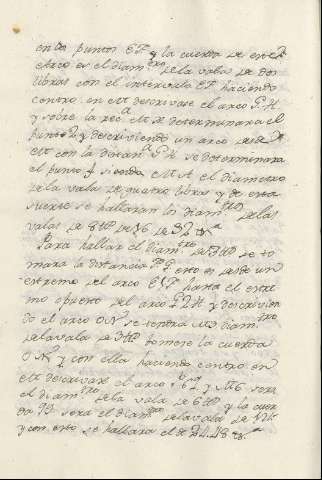 en do puntos E P y la cuerda de este
Arco es el diam.tro de la valas de dos
libras con el intervalo E P haciendo
centro en M descrivase el arco P. H
y sobre la rec.ta M determinara el
punto 2 y descriviendo un arco desde
M con la distan.a P. H se determinara
el punto siendo M A el diametro
de la valas de quatro libras y de esta
suerte se hallaran los diam.tros de las
valas de 8 de 16 de 32 &.a
Para hallar el diam.tro de 3 se to
mara la distancia esto es desde un
estremo del arco E P hasta el estre
mo opuesto del arco P 2 H y descrivien
do el arco O N se tendra diam.tro
de la vala de 3 tomese la cuerda
O N y con ella haciendo centro en
M descrivase el arco y M 6 sera
el diam.tro de la vala de 6 y la cuer
da sera el diam.tro de la vala de 12
y con esto se hallara el de 24. 48 &.a